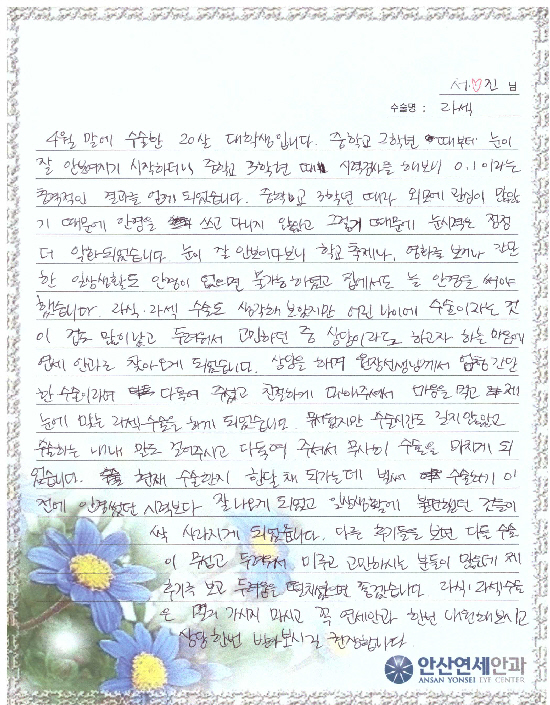 서♡진 님
수술명 : 라섹
4월 말에 수술한 20살 대학생입니다. 중학교 2학년 때부터 눈이
잘 안보여지기 시작하더니 중학교 3학년 때 시력검사를 해보니 0.1이라는
충격적인 결과를 얻게 되었습니다. 중학교 3학년 때라 외모에 관심이 많았
기 때문에 안경을 쓰고 다니지 않았고 그렇기 때문에 눈시력은 점점
더 악화되었습니다. 눈이 잘 안보이다보니 학교축제나, 영화를 보거나 간단
한 일상생활도 안경이 없으면 불가능하였고 집에서도 늘 안경을 써야
했습니다. 라식·라섹 수술도 생각해 보았지만 어린 나이에 수술이라는 것
이 겁도 많이났고 두려워서 고민하던 중 상담이라도 하고자 하는 마음에
연세 안과로 찾아오게 되었습니다. 상담을 하며 원장선생님께서 엄청 간단
한 수술이라며 다독여 주셨고 친절하게 대해주셔서 마음을 먹고 제
눈에 맞는 라섹수술을 하게 되었습니다. 무서웠지만 수술시간도 길지않았고
수술하는 내내 말도 걸어주시고 다독여 주셔서 무사히 수술을 마치게 되
었습니다. 현재 수술한지 한달 채 되가는데 벌써 수술하기 이
전에 안경썼던 시력보다 잘 나오게 되었고 일상생활에 불편했던 것들이
싹 사라지게 되었습니다. 다른 후기들을 보면 다들 수술
이 무섭고 두려워서 미루고 고민하시는 분들이 많은데 제
후기를 보고 두려움을 떨쳐냈으면 좋겠습니다. 라식·라섹수술
은 멀리 가시지 마시고 꼭 연세안과 한번 내원해보시고
상담한번 받아보시길 권장합니다.
안산연세안과
ANSAN YONSEI EYE CENTER